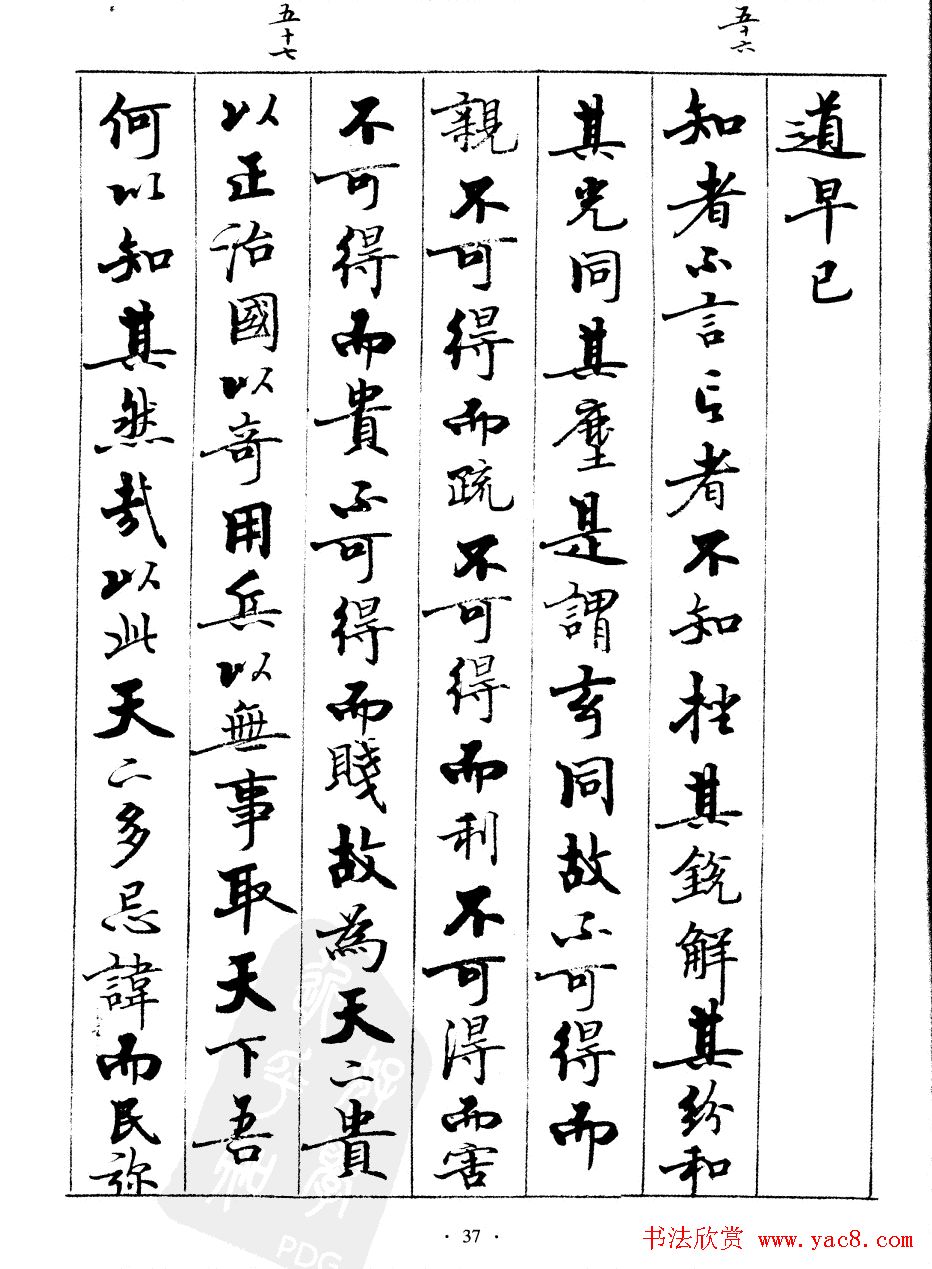 五十六
道早已
知者不言言者不知挫其銳解其紛和
其光同其塵是謂玄同故不可得而
親不可得而疏不可得而利不可得而害
不可得而貴不可得而賤故為天下貴
五十七
以正治國以奇用兵以無事取天下吾
何以知其然哉以此天下多忌諱而民弥
· 37 ·
PDG
书法欣赏 www.yac8.com